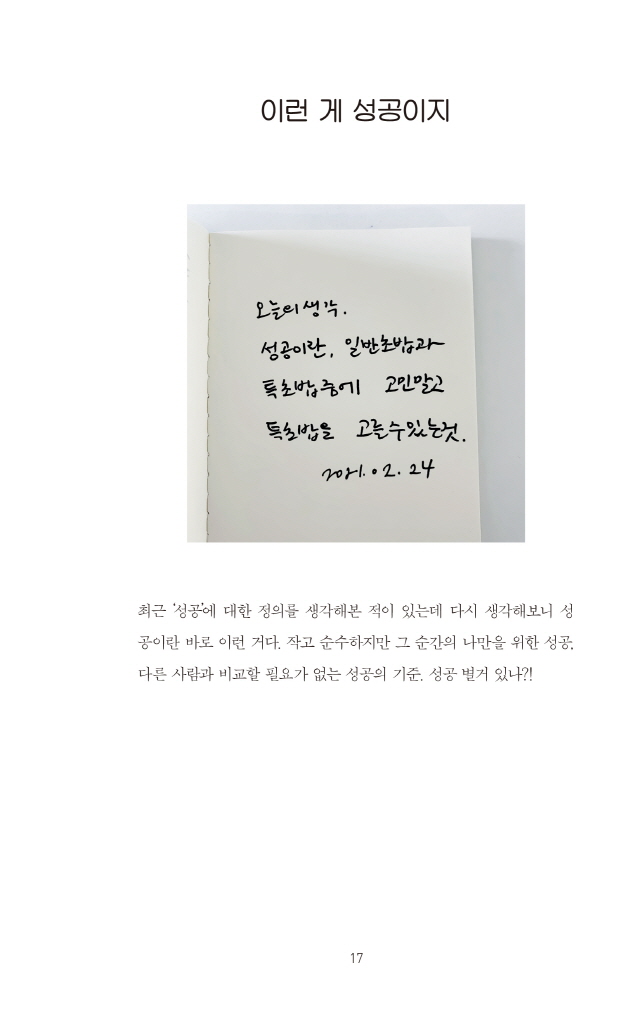 이런 게 성공이지
오늘의 생각.
성공이란, 일반초밥과
특초밥중에 고민말고
특초밥을 고를수있는것.
2021.02.24
최근 '성공'에 대한 정의를 생각해본 적이 있는데 다시 생각해보니 성
공이란 바로 이런 거다. 작고 순수하지만 그 순간의 나만을 위한 성공.
다른 사람과 비교할 필요가 없는 성공의 기준. 성공 별거 있나?!
17